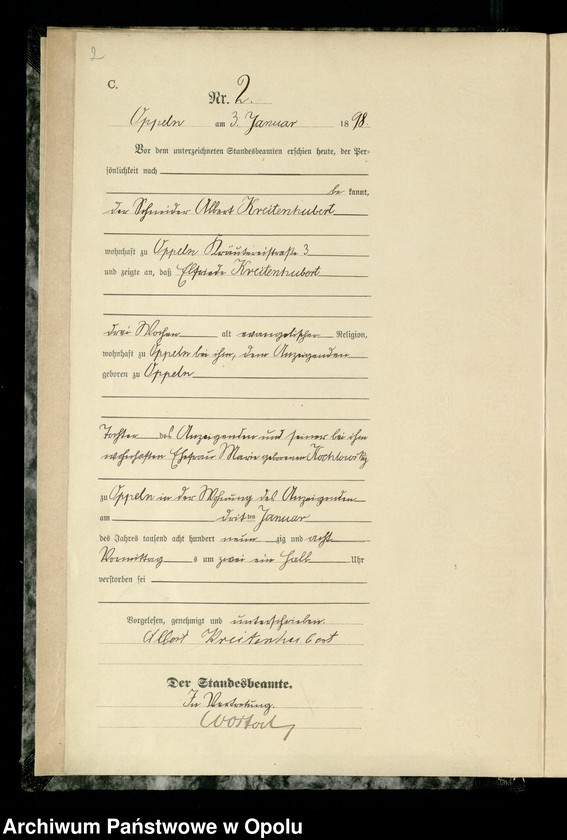 2
C.
Nr. 2.
Oppeln am 3. Januar 1898.
Vor dem unterzeichneten Standesbeamten erschien heute, der Per-
sönlichkeit nach
be kannt,
der Schneider Albert Kreitenhubert
wohnhaft zu Oppeln Kräutereistraße 3
und zeigte an, daß Elfriede Kreitenhubert
drei Wochen alt evangelischer Religion,
wohnhaft zu Oppeln bei ihm, dem Anzeigenden
geboren zu Oppeln
Tochter des Anzeigenden und seiner bei ihm
wohnhaften Ehefrau Marie geborenen
zu Oppeln in der Wohnung des Anzeigenden
am dritten Januar
des Jahres tausend acht hundert neun zig und acht
Vormittag s um zwei ein halb Uhr
verstorben sei
Vorgelesen, genehmigt und unterschrieben.
Albert Kreitenhubert
Der Standesbeamte.
In Vertretung.
Archiwum Państwowe w Opolu